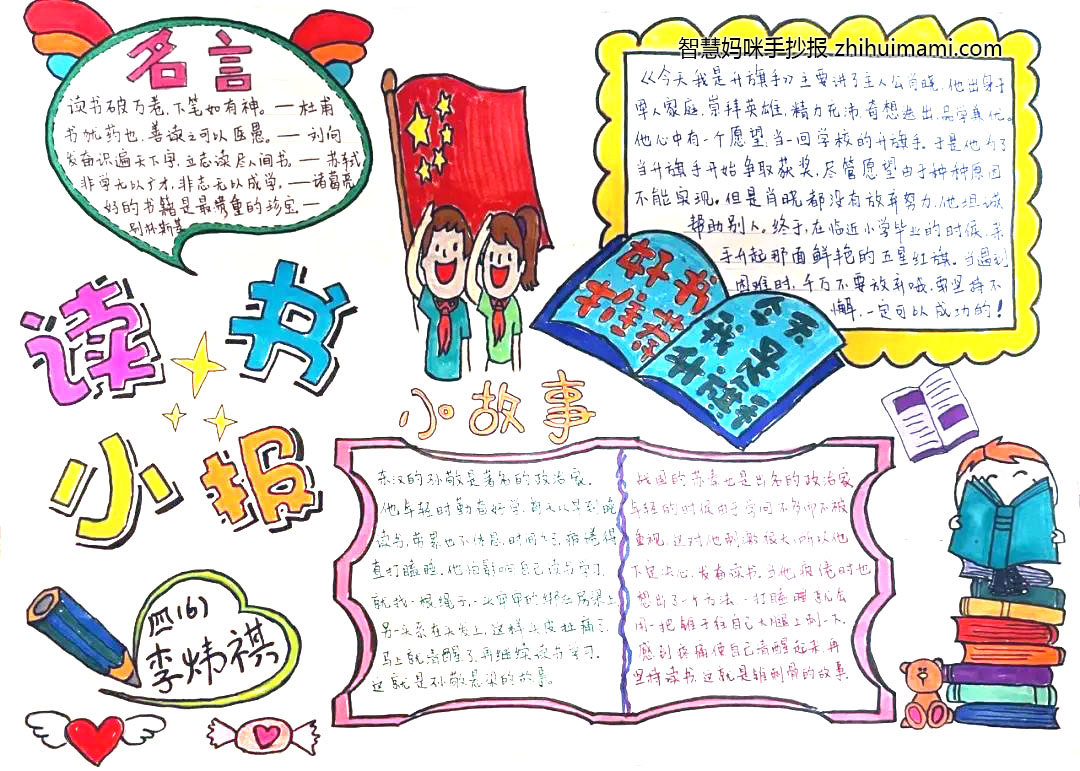 智慧妈咪手抄报 zhihuimami.com
名言
读书破万卷,下笔如有神。—杜甫
书犹药也,善读之可以医愚。—刘向
发奋识遍天下字,立志读尽人间书。—苏轼
非学无以广才,非志无以成学。—诸葛亮
好的书籍是最贵重的珍宝—
别林斯基
《今天我是升旗手》主要讲了主人公肖晓,他出身于
军人家庭,崇拜英雄,精力充沛,奇想迭出,品学兼优。
他心中有一个愿望:当一回学校的升旗手,于是他为了
当升旗手开始争取获奖,尽管愿望由于种种原因
不能实现。但是肖晓都没有放弃努力,他坦诚
帮助别人。终于,在临近小学毕业的时候,亲
手升起那面鲜艳的五星红旗。当遇到
困难时,千万不要放弃哦,要坚持不
懈,一定可以成功的!
好书
推荐
今天
我是
升旗手
读书
小报
小故事
东汉的孙敬是著名的政治家。
他年轻时勤奋好学,每天从早到晚
读书,劳累也不休息,时间久了疲倦得
直打瞌睡。他怕影响自己读书学习。
就找一根绳子,一头牢牢的绑在房梁上
另一头系在头发上,这样头皮扯痛了
马上就清醒了,再继续读书学习。
这就是孙敬悬梁的故事。
战国的苏秦也是出名的政治家
年轻的时候由于学问不多而不被
重视,这对他刺激很大,所以他
下定决心,发奋读书。当他疲倦时也
想出了一个方法,一打瞌睡就会
用一把锥子往自己大腿上刺一下,
感到疼痛使自己清醒起来,再
坚持读书。这就是锥刺骨的故事。
四(6)
李炜祺